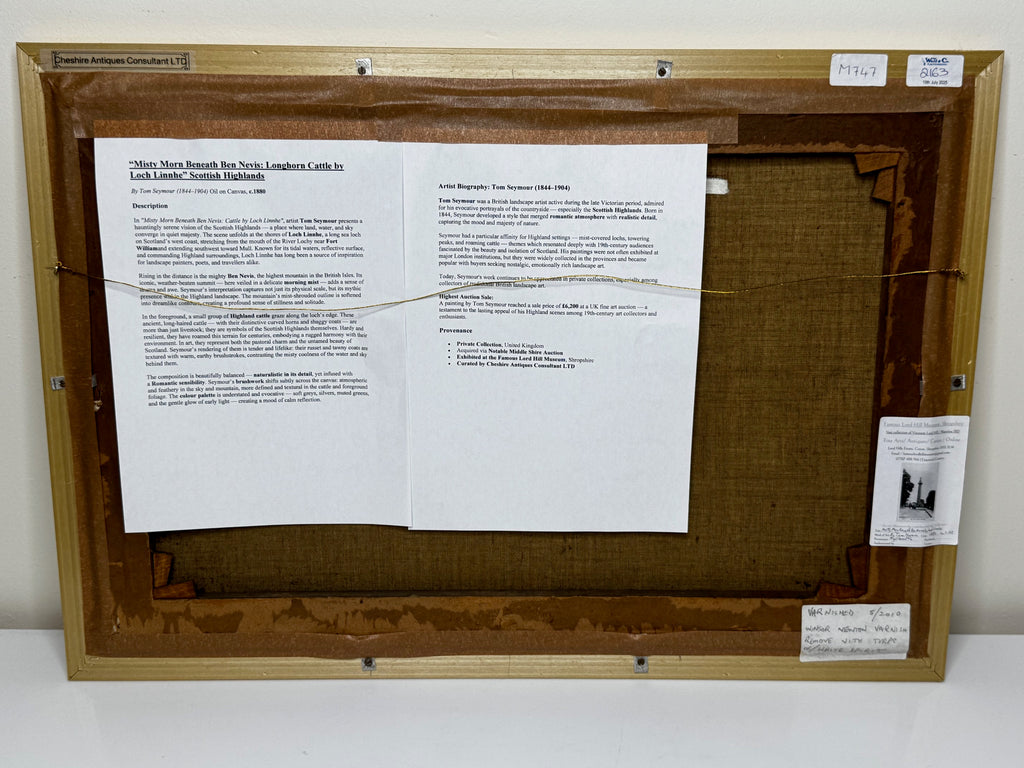 Cheshire Antiques Consultant LTD
M747
2163
10th July 2025
"Misty Morn Beneath Ben Nevis: Longhorn Cattle by
Loch Linnhe" Scottish Highlands
By Tom Seymour (1844–1904) Oil on Canvas, c.1880
Description
In "Misty Morn Beneath Ben Nevis: Cattle by Loch Linnhe", artist Tom Seymour presents a
hauntingly serene vision of the Scottish Highlands — a place where land, water, and sky
converge in quiet majesty. The scene unfolds at the shores of Loch Linnhe, a long sea loch
on Scotland's west coast, stretching from the mouth of the River Lochy near Fort
Williamand extending southwest toward Mull. Known for its tidal waters, reflective surface,
and commanding Highland surroundings, Loch Linnhe has long been a source of inspiration
for landscape painters, poets, and travellers alike.
Rising in the distance is the mighty Ben Nevis, the highest mountain in the British Isles. Its
iconic, weather-beaten summit — here veiled in a delicate morning mist — adds a sense of
drama and awe. Seymour's interpretation captures not just its physical scale, but its mythic
presence within the Highland landscape. The mountain's mist-shrouded outline is softened
into dreamlike contours, creating a profound sense of stillness and solitude.
In the foreground, a small group of Highland cattle graze along the loch's edge. These
ancient, long-haired cattle — with their distinctive curved horns and shaggy coats — are
more than just livestock; they are symbols of the Scottish Highlands themselves. Hardy and
resilient, they have roamed this terrain for centuries, embodying a rugged harmony with their
environment. In art, they represent both the pastoral charm and the untamed beauty of
Scotland. Seymour's rendering of them is tender and lifelike: their russet and tawny coats are
textured with warm, earthy brushstrokes, contrasting the misty coolness of the water and sky
behind them.
The composition is beautifully balanced — naturalistic in its detail, yet infused with
a Romantic sensibility. Seymour's brushwork shifts subtly across the canvas: atmospheric
and feathery in the sky and mountain, more defined and textural in the cattle and foreground
foliage. The colour palette is understated and evocative — soft greys, silvers, muted greens,
and the gentle glow of early light — creating a mood of calm reflection.
Artist Biography: Tom Seymour (1844–1904)
Tom Seymour was a British landscape artist active during the late Victorian period, admired
for his evocative portrayals of the countryside — especially the Scottish Highlands. Born in
1844, Seymour developed a style that merged romantic atmosphere with realistic detail,
capturing the mood and majesty of nature.
Seymour had a particular affinity for Highland settings — mist-covered lochs, towering
peaks, and roaming cattle — themes which resonated deeply with 19th-century audiences
fascinated by the beauty and isolation of Scotland. His paintings were not often exhibited at
major London institutions, but they were widely collected in the provinces and became
popular with buyers seeking nostalgic, emotionally rich landscape art.
Today, Seymour's work continues to be appreciated in private collections, especially among
collectors of traditional British landscape art.
Highest Auction Sale:
A painting by Tom Seymour reached a sale price of £6,200 at a UK fine art auction — a
testament to the lasting appeal of his Highland scenes among 19th-century art collectors and
enthusiasts.
Provenance
• Private Collection, United Kingdom
• Acquired via Notable Middle Shire Auction
• Exhibited at the Famous Lord Hill Museum, Shropshire
• Curated by Cheshire Antiques Consultant LTD
Famous Lord Hill Museum, Shropshire
Fine Art/ Antiques/ Coins / Online
VARNISHED 5/2010
WINSOR NEWTON VARNISH
REMOVE WITH TURPS
OR WHITE SPIRIT